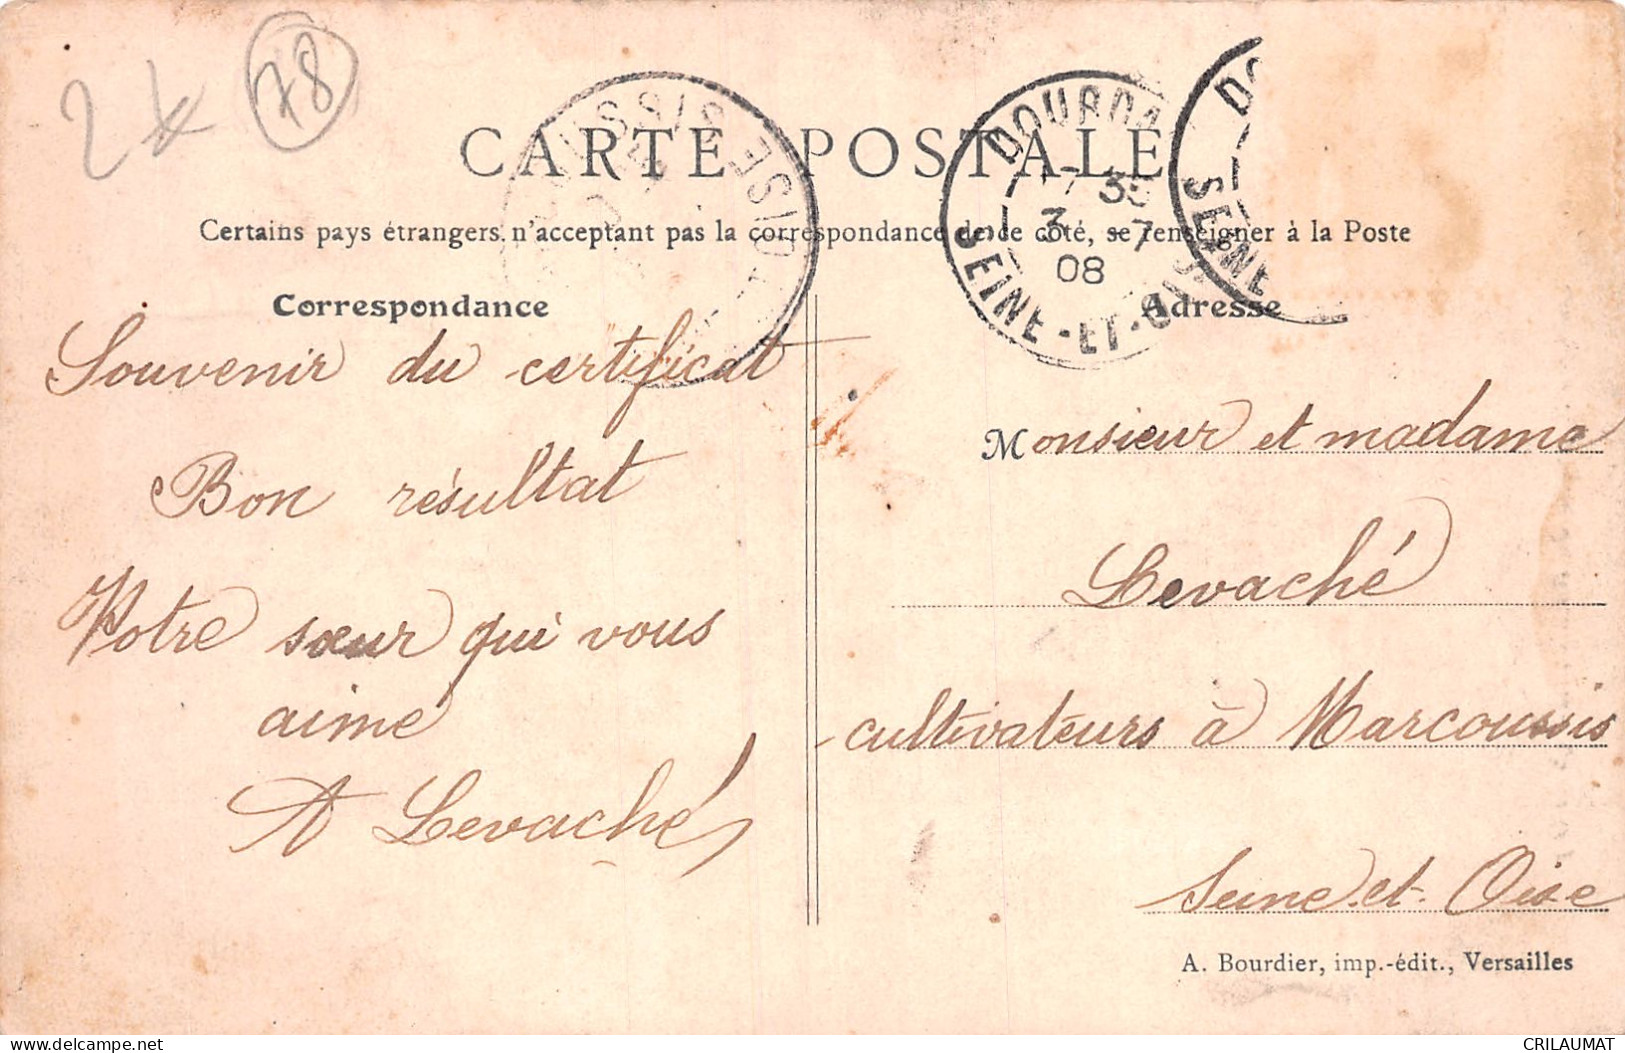 2
78
CARTE POSTALE
Certains pays étrangers n'acceptant pas la correspondance de ce côté, se renseigner à la Poste
Correspondance
Souvenir du certificat
Bon résultat
Votre sœur qui vous
aime
A Levaché
DOURDA
3 -7
08
SEINE-ET-OI
SEINE
Adresse
Monsieur et madame
Levaché
cultivateurs à Marcoussis
Seine-et-Oise
A. Bourdier, imp.-édit., Versailles
CRILAUMAT